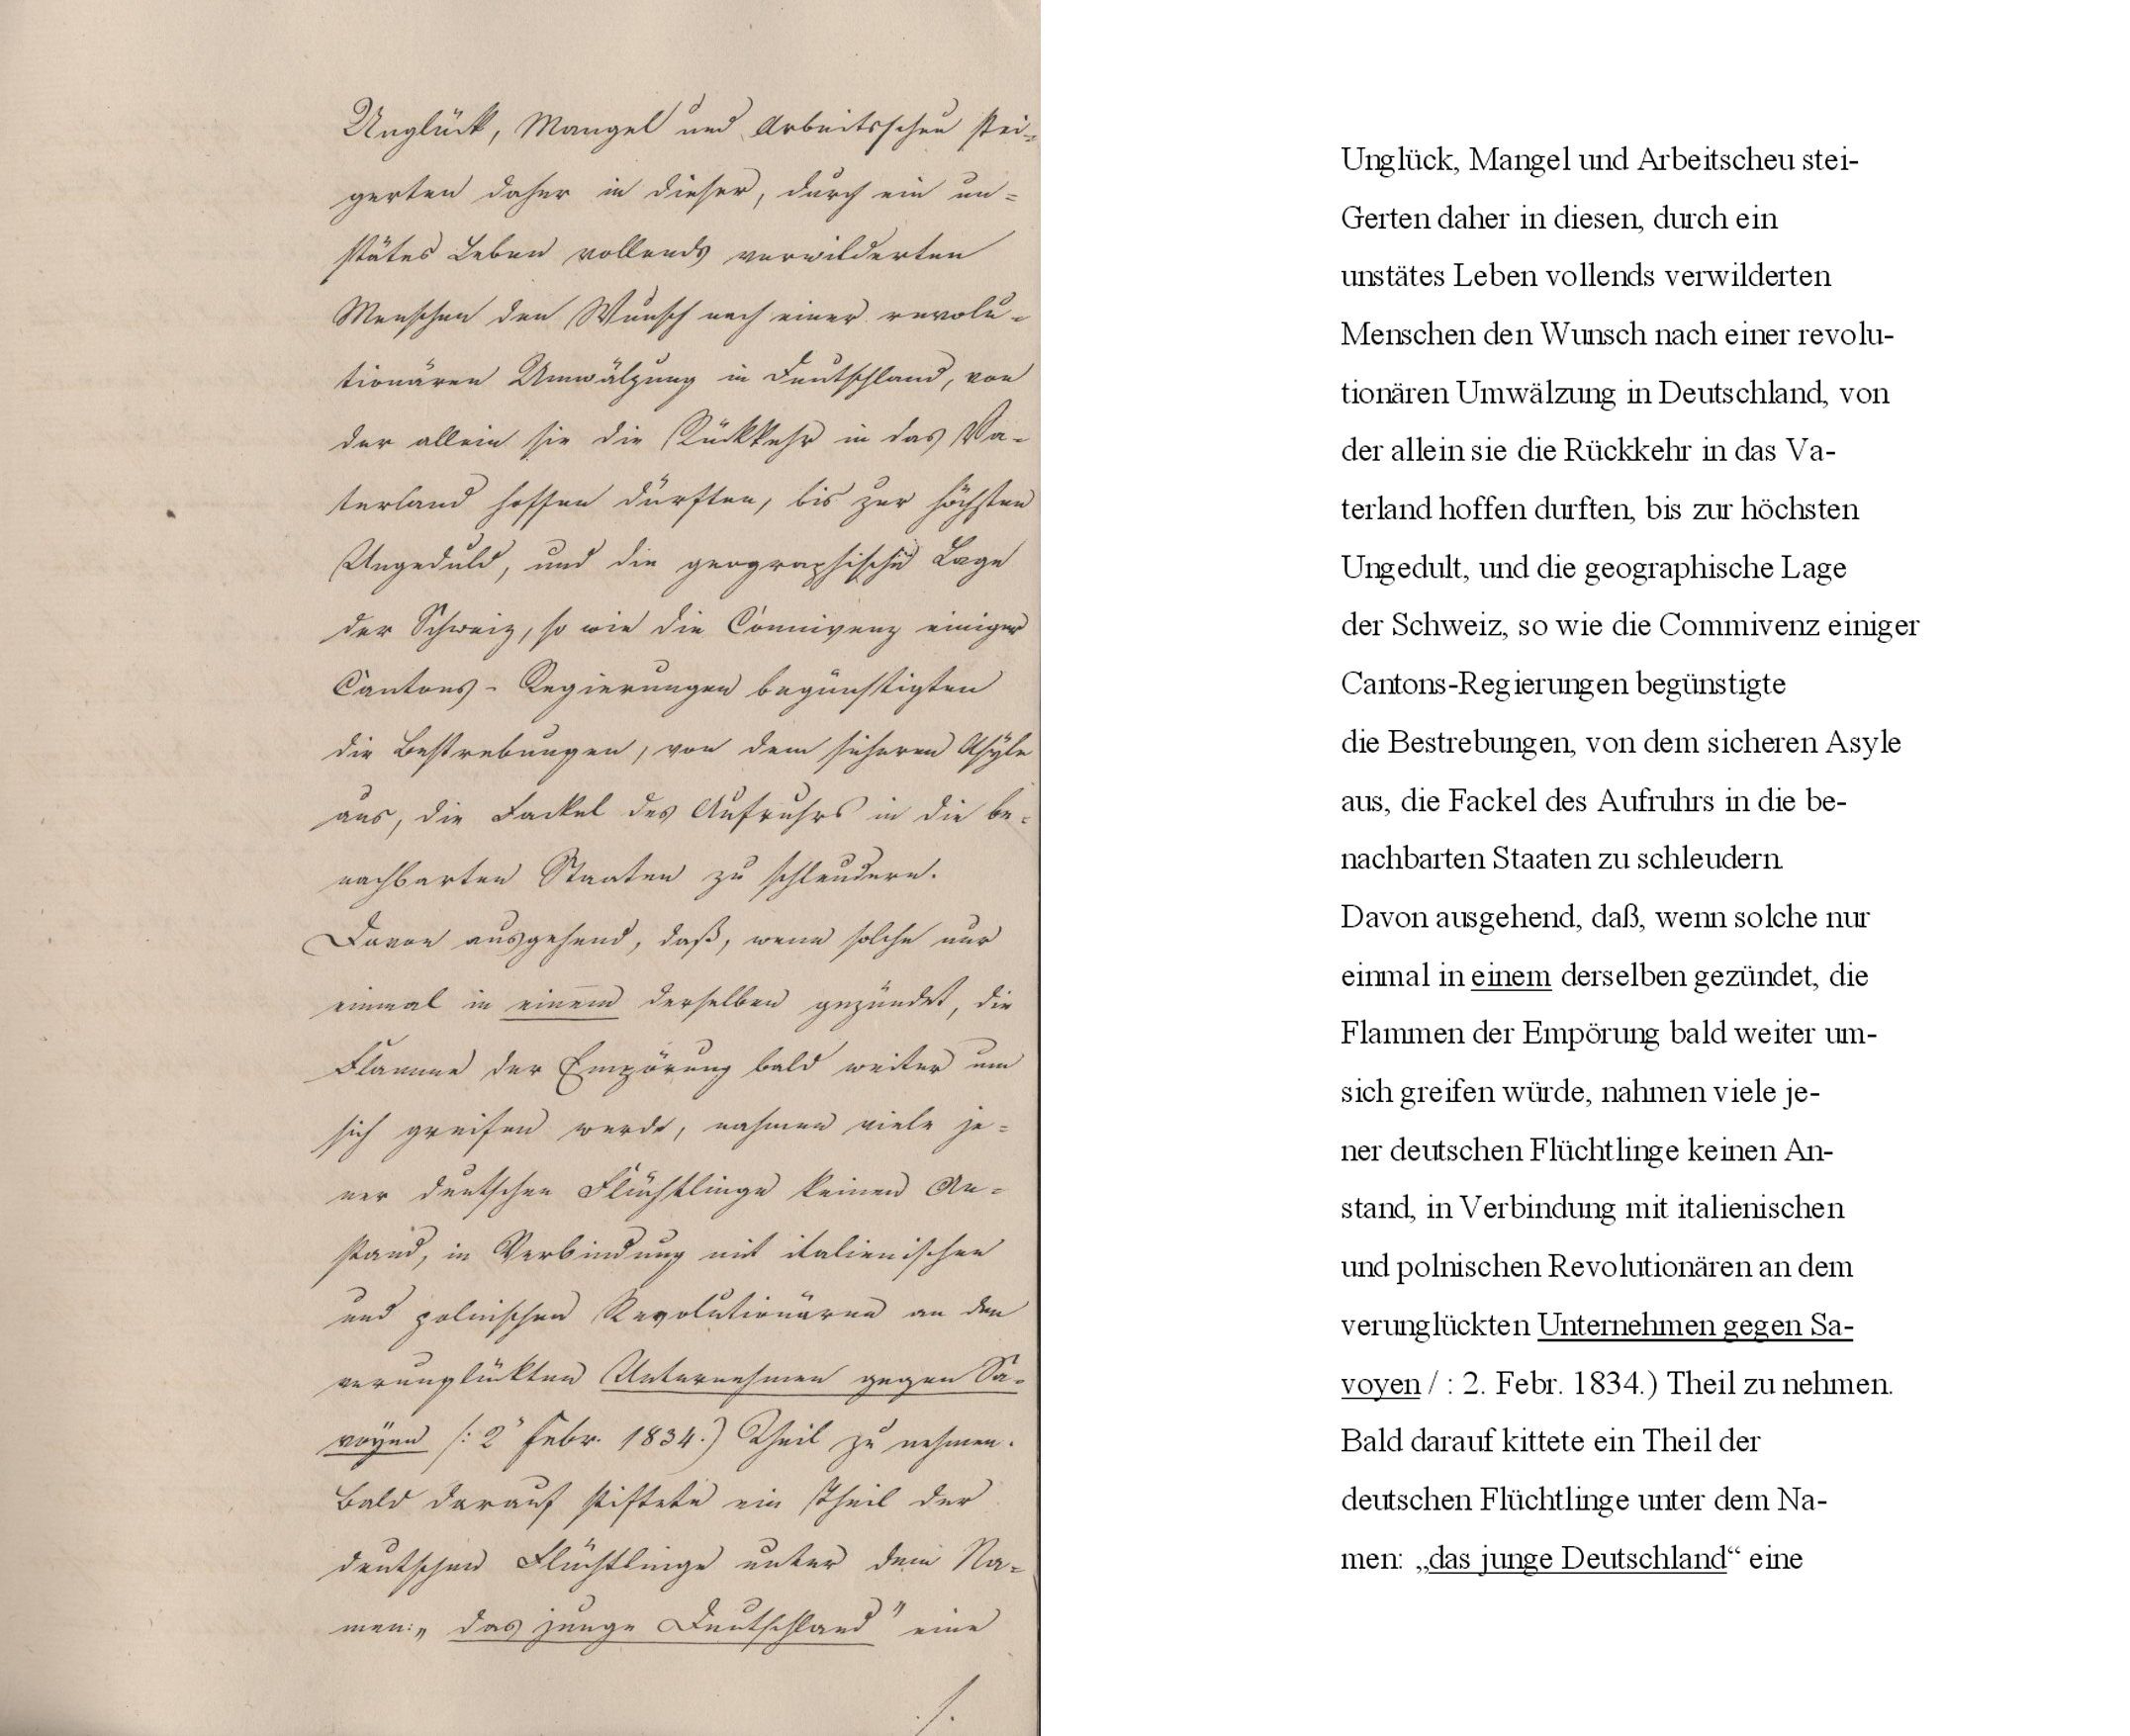 Unglück, Mangel und Arbeitsscheu stei-
gerten daher in dieser, durch ein un-
stätes Leben vollends verwilderten
Menschen den Wunsch nach einer revolu-
tionären Umwälzung in Deutschland, von
der allein sie die Rückkehr in das Va-
terland hoffen dürften, bis zur höchsten
Ungeduld, und die geographische Lage
der Schweiz, so wie die Connivenz einiger
Cantons-Regierungen begünstigten
die Bestrebungen, von dem sicheren Asÿle
aus, die Fackel des Aufruhrs in die be-
nachbarten Staaten zu schleudern.
Davon ausgehend, daß, wenn solche nur
einmal in einem derselben gezündet, die
Flamme der Empörung bald weiter um
sich greifen werde, nahmen viele je-
ner deutschen Flüchtlinge keinen An-
stand, in Verbindung mit italienischen
und polnischen Revolutionären an dem
verunglückten Unternehmen gegen Sa-
voÿen /: 2" Febr. 1834.) Theil zu nehmen.
Bald darauf stiftete ein Theil der
deutschen Flüchtlinge unter dem Na-
men: „das junge Deutschland" eine
./.
Unglück, Mangel und Arbeitscheu stei-
Gerten daher in diesen, durch ein
unstätes Leben vollends verwilderten
Menschen den Wunsch nach einer revolu-
tionären Umwälzung in Deutschland, von
der allein sie die Rückkehr in das Va-
terland hoffen durften, bis zur höchsten
Ungedult, und die geographische Lage
der Schweiz, so wie die Commivenz einiger
Cantons-Regierungen begünstigte
die Bestrebungen, von dem sicheren Asyle
aus, die Fackel des Aufruhrs in die be-
nachbarten Staaten zu schleudern.
Davon ausgehend, daß, wenn solche nur
einmal in einem derselben gezündet, die
Flammen der Empörung bald weiter um-
sich greifen würde, nahmen viele je-
ner deutschen Flüchtlinge keinen An-
stand, in Verbindung mit italienischen
und polnischen Revolutionären an dem
verunglückten Unternehmen gegen Sa-
voyen / : 2. Febr. 1834.) Theil zu nehmen.
Bald darauf kittete ein Theil der
deutschen Flüchtlinge unter dem Na-
men: „das junge Deutschland“ eine